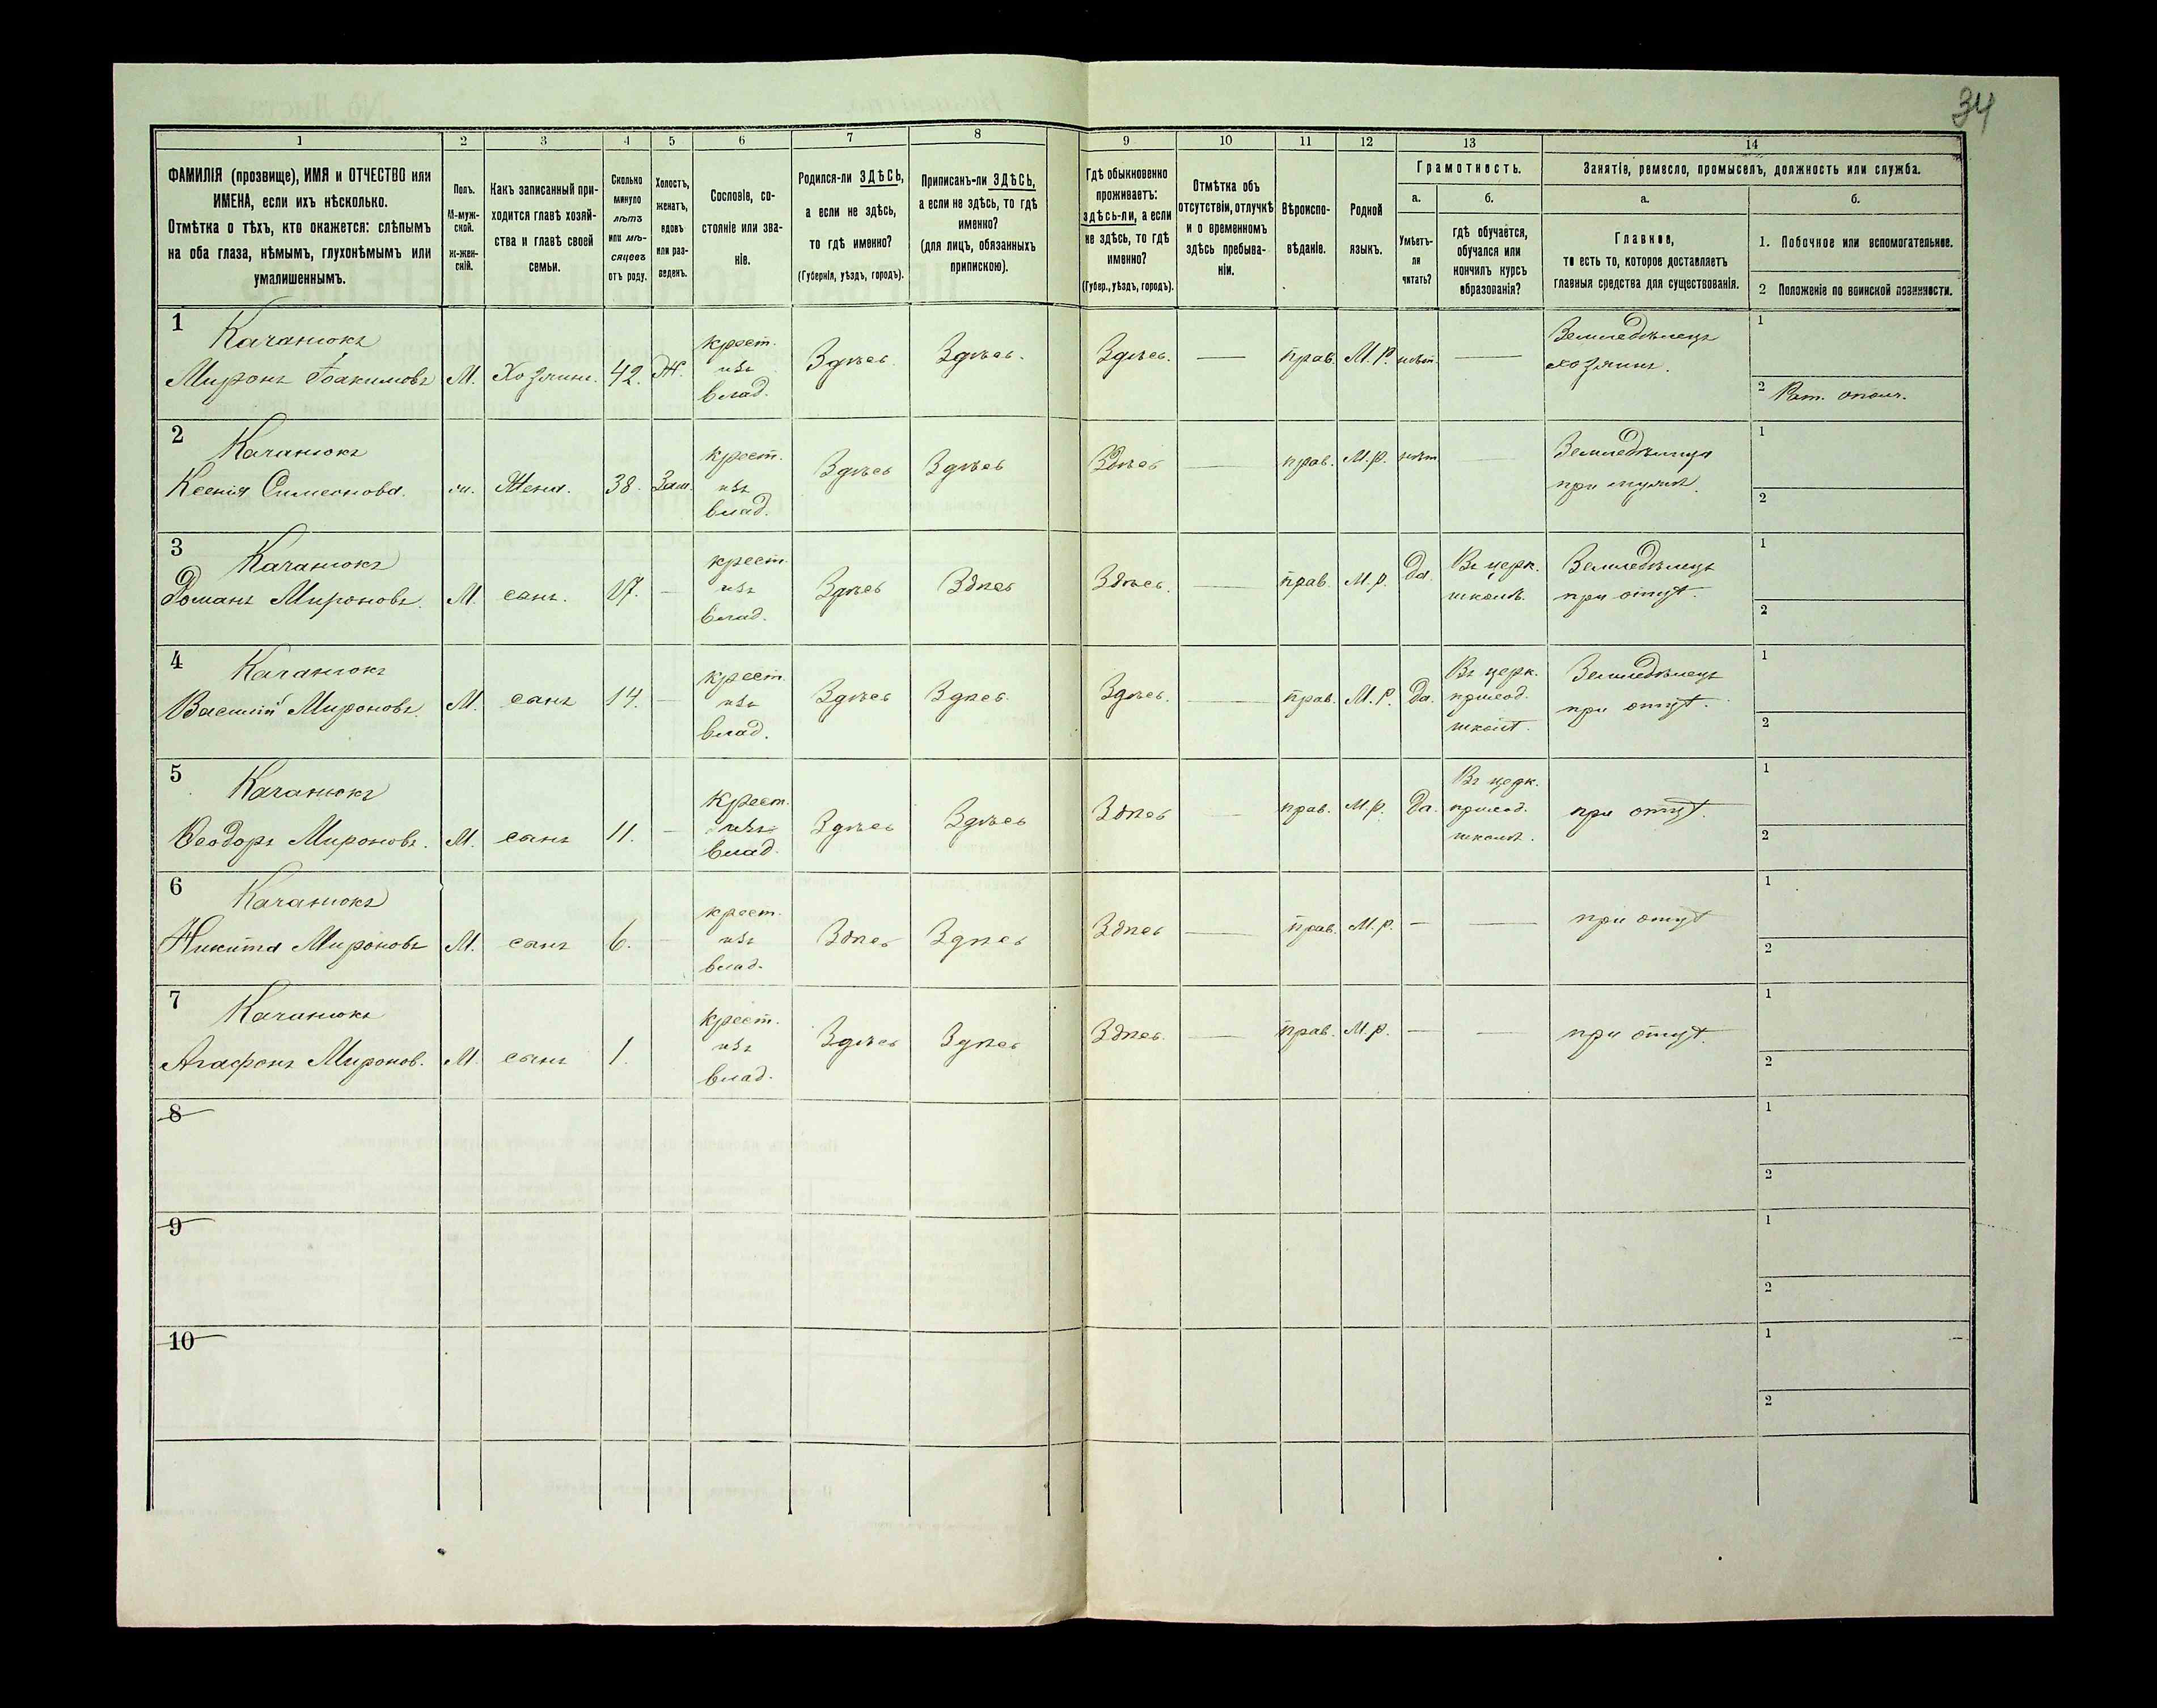 34
1 2 3 4 5 6 7 8 9 10 11 12 13 14
ФАМИЛІЯ (прозвище), ИМЯ и ОТЧЕСТВО или
ИМЕНА, если ихъ нѣсколько.
Отмѣтка о тѣхъ, кто окажется: слѣпымъ
на оба глаза, нѣмымъ, глухонѣмымъ или
умалишеннымъ.
Полъ.
М-муж-
ской.
ж-жен-
скій.
Какъ записанный при-
ходится главѣ хозяй-
ства и главѣ своей
семьи.
Сколько
минуло
лѣтъ
или мѣ-
сяцевъ
отъ роду.
Холостъ,
женатъ,
вдовъ
или раз-
веденъ.
Сословіе, со-
стояніе или зва-
ніе.
Родился-ли ЗДѢСЬ,
а если не здѣсь,
то гдѣ именно?
(Губернія, уѣздъ, городъ).
Приписанъ-ли ЗДѢСЬ,
а если не здѣсь, то гдѣ
именно?
(для лицъ, обязанныхъ
припискою).
Гдѣ обыкновенно
проживаетъ:
здѣсь-ли, а если
не здѣсь, то гдѣ
именно?
(Губер., уѣздъ, городъ).
Отмѣтка объ
отсутствіи, отлучкѣ
и о временномъ
здѣсь пребыва-
ніи.
Вѣроиспо-
вѣданіе.
Родной
языкъ.
Грамотность.
а.
Умѣетъ-
ли
читать?
б.
гдѣ обучается,
обучался или
кончилъ курсъ
образованія?
Занятіе, ремесло, промыселъ, должность или служба.
а.
Главное,
то есть то, которое доставляетъ
главныя средства для существованія.
б.
1. Побочное или вспомогательное.
2 Положеніе по воинской повинности.
1
Качанюкъ
Миронъ Іоакимовъ
М.
Хозяинъ.
42.
Ж.
крест.
изъ
влад.
Здѣсь
Здѣсь.
Здѣсь.
—
прав.
М.Р.
нѣт
—
Земледѣлецъ
хозяинъ.
1
2 Рат. ополч.
2
Качанюкъ
Ксенія Симеонова.
ж.
Жена.
38.
Зам.
крест.
изъ
влад.
Здѣсь
Здѣсь
Здѣсь
—
прав.
М.р.
нѣт
—
Земледѣлица
при мужѣ.
1
2
3
Качанюкъ
Романъ Мироновъ.
М.
сынъ.
17.
—
крест.
изъ
влад.
Здѣсь
Здѣсь
Здѣсь.
—
прав.
М.р.
Да.
Въ церк.
школѣ.
Земледѣлецъ
при отцѣ.
1
2
4
Качанюкъ
Василій Мироновъ.
М.
сынъ
14.
—
крест.
изъ
влад.
Здѣсь
Здѣсь.
Здѣсь.
—
прав.
М.Р.
Да.
Въ церк.
приход.
школѣ.
Земледѣлецъ
при отцѣ.
1
2
5
Качанюкъ
Ѳеодоръ Мироновъ.
М.
сынъ
11.
—
крест.
изъ
влад.
Здѣсь
Здѣсь
Здѣсь
—
прав.
М.р.
Да.
Въ церк.
приход.
школѣ.
при отцѣ.
1
2
6
Качанюкъ
Никита Мироновъ
М.
сынъ
6.
—
крест.
изъ
влад.
Здѣсь
Здѣсь
Здѣсь
—
прав.
М.р.
—
—
при отцѣ
1
2
7
Качанюкъ
Агафонъ Миронов.
М.
сынъ
1.
крест.
изъ
влад.
Здѣсь
Здѣсь
Здѣсь.
—
прав.
М.р.
—
—
при отцѣ.
1
2
8
1
2
9
1
2
10
1
2